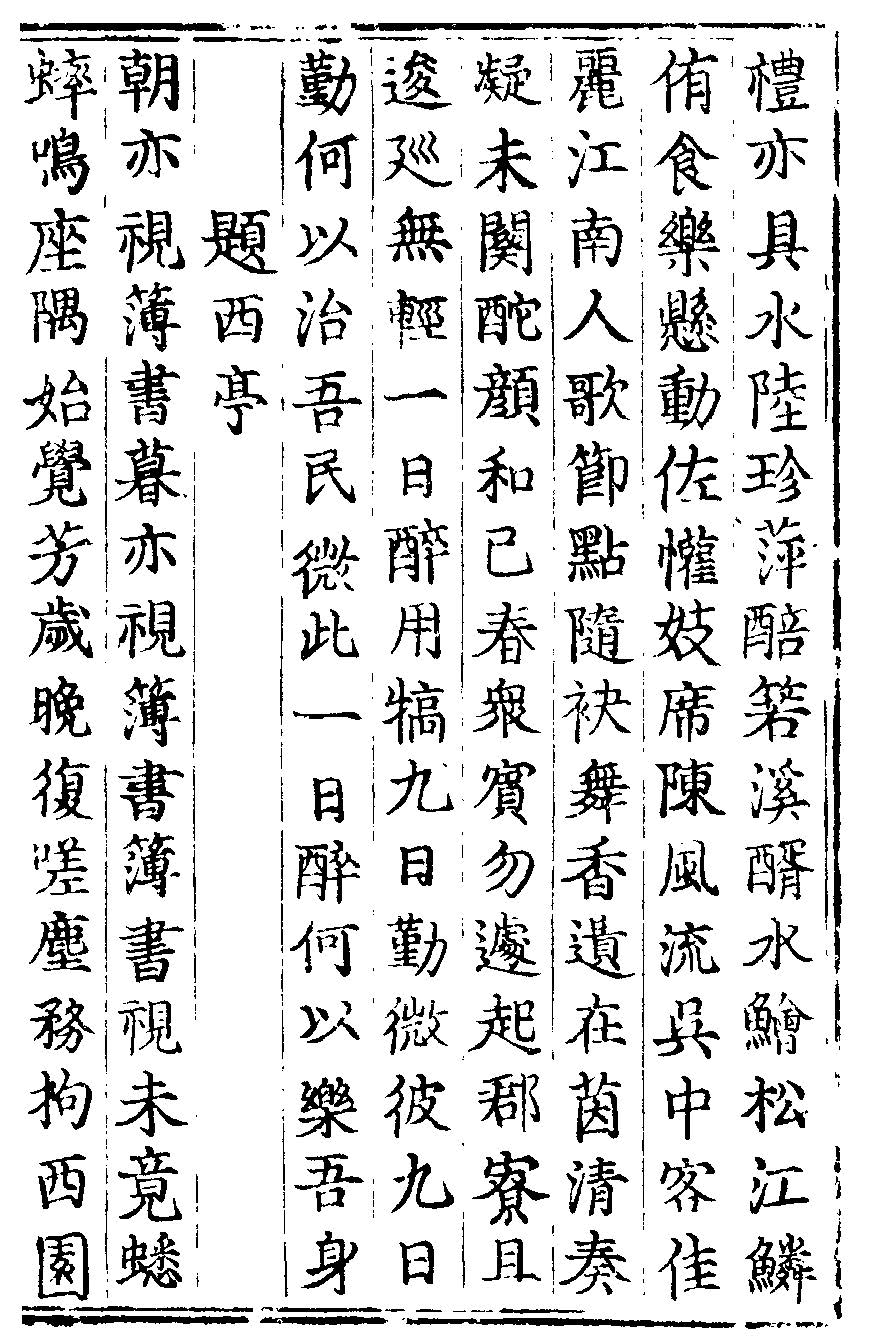 禮亦具水陸珍萍醅箬溪醑水鱠松江鱗
侑食樂懸動佐懽妓席陳風流吳中客佳
麗江南人歌節點隨袂舞香遺在茵清奏
凝未闋酡顔和已春衆賓勿遽起郡寮且
逡廵無輕一日醉用犒九日勤微彼九日
勤何以治吾民微此一日醉何以樂吾身
題西亭
朝亦視簿書暮亦視簿書簿書視未竟蟋
蟀鳴座隅始覺芳歲晚復嗟塵務拘西園